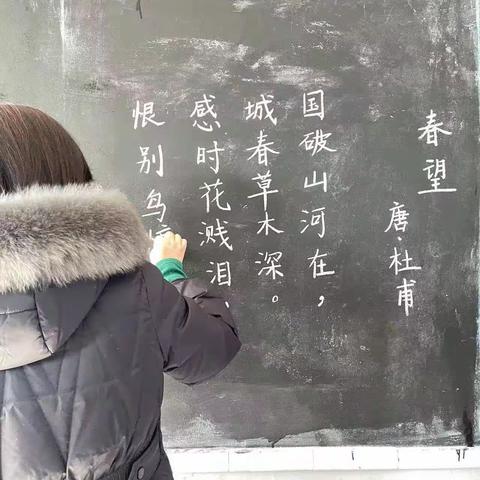 春望
唐·杜甫
国破山河在，
城春草木深。
感时花溅泪，
恨别鸟